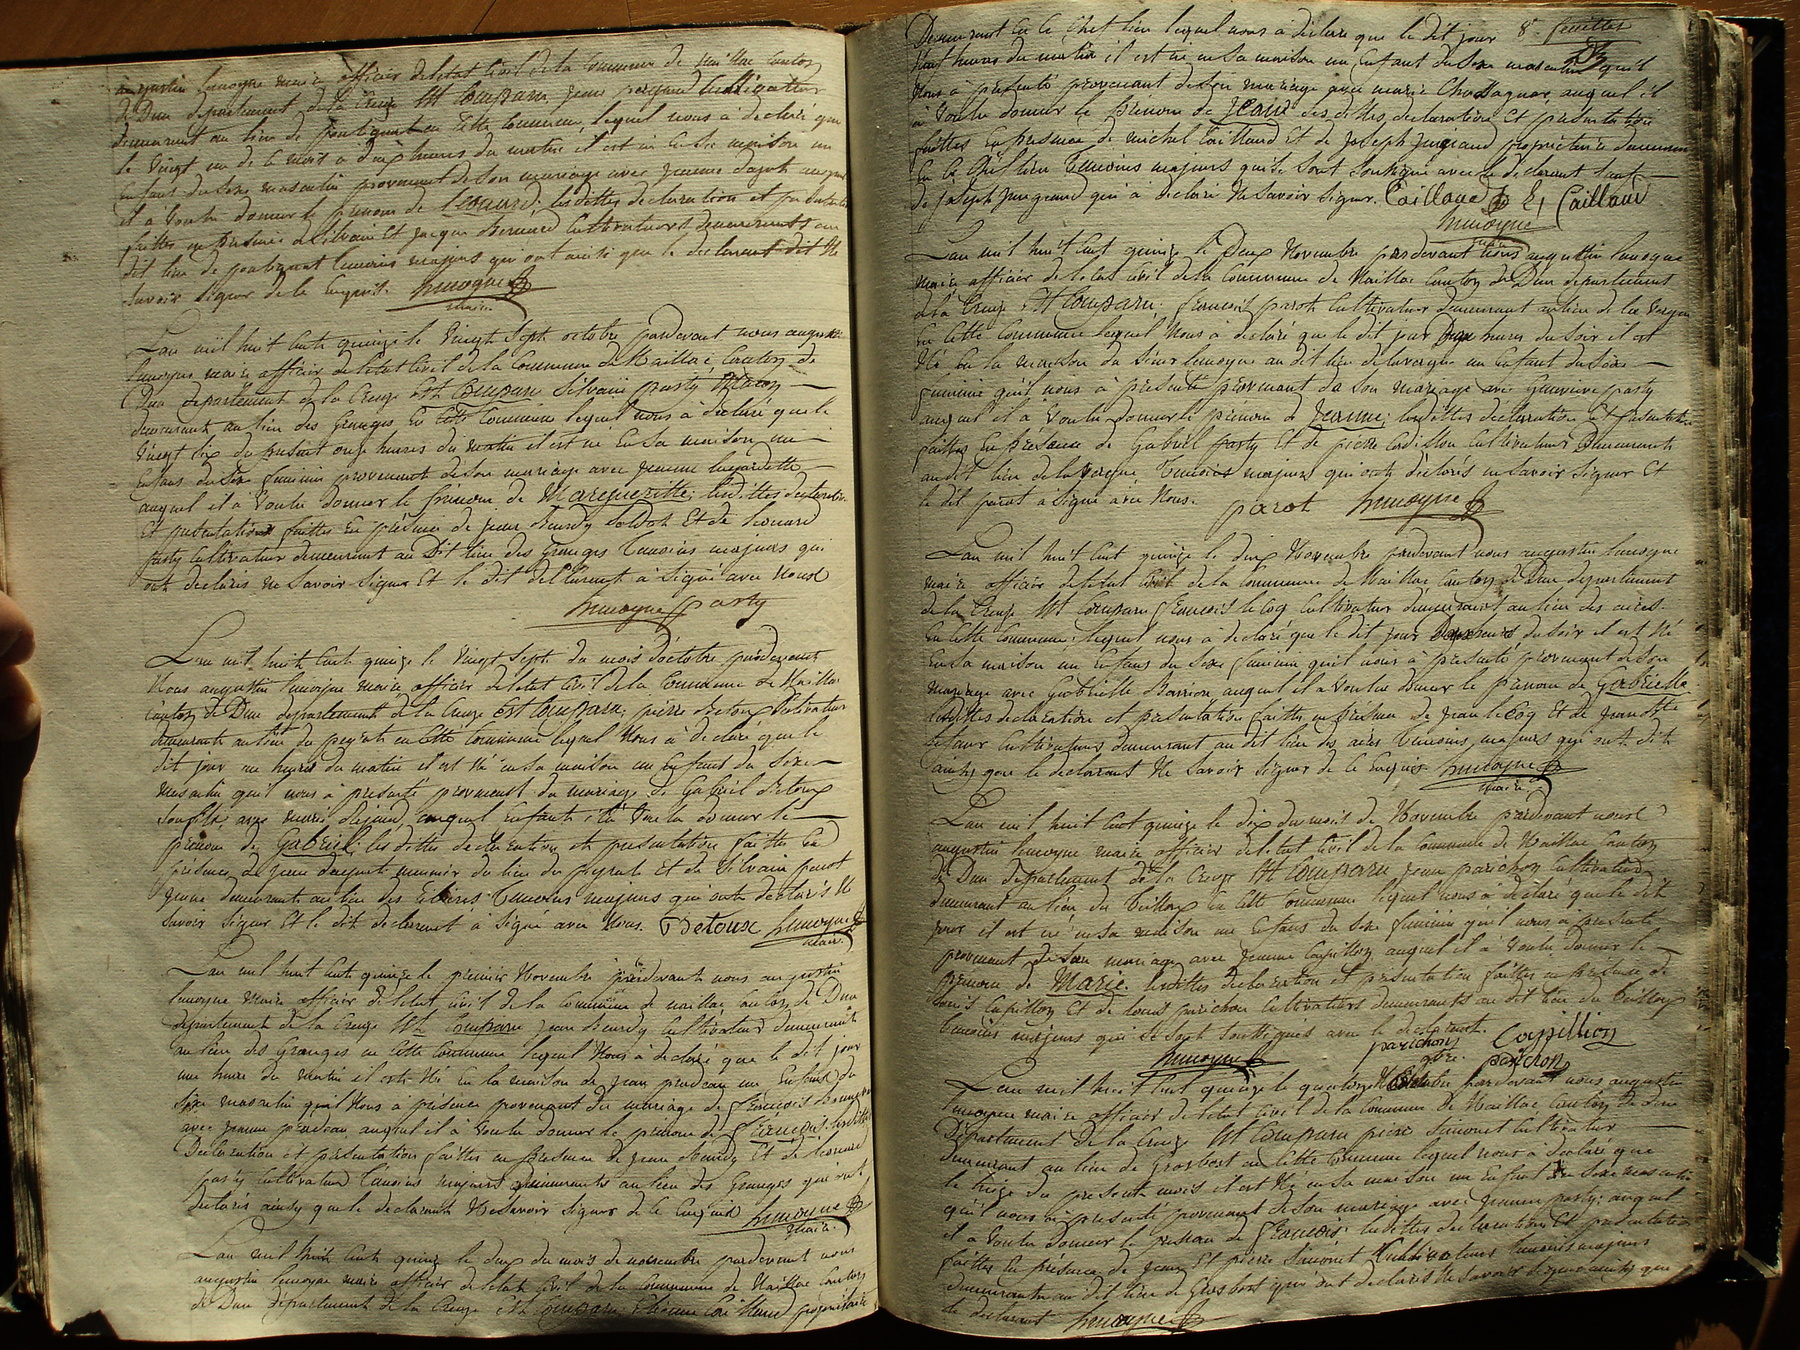 augustin lemoyne maire officier de letat Civil de la Commune de Naillac Canton
de Dun departement de la Creuse Est Comparu jean cultivateur
demeurant au lieu de en Cette Commune, lequel nous a declaré que
le vingt un de ce mois a deux heures du matin il est né en sa maison un
Enfant du sexe masculin provenant de son mariage avec jeanne auquel
il a voulu donner le prénom de Leonard, lesdittes declaration et presentation
faittes en presence de Silvain Et jacque Bernard Cultivateurs demeurants au
dit lieu de temoins majeurs qui ont ainsi que le declarant dit Ne
Savoir Signer de le Enquis. Lemoyne
maire
Lan mil huit Cent quinze le Vingt Sept octobre pardevant nous augustin
lemoyne maire officier de letat Civil de la Commune de Naillac, Canton de
Dun departement de la Creuse Est Comparu Silvain party Macon
demeurant au lieu des Granges En Cette Commune lequel nous à declaré que le
Vingt Six du présent onze heures du matin il est né En sa maison un
Enfant du Sexe feminin provenant de son mariage avec jeanne
auquel il à Voulu donner le prénom de Margueritte; lesdittes declaration
Et presentation faittes En présence de jean Beurdy Soldat Et de Leonard
party Cultivateur demeurant au Dit lieu des Granges Temoins majeurs qui
ont declarés ne Savoir Signer Et le dit declarant à Signé avec Nous
Lemoyne party
Lan mil huit Cent quinze le Vingt Sept du mois d'octobre pardevant
Nous augustin lemoyne maire officier de letat Civil de la Commune de Naillac
Canton de Dun departement de la Creuse Est Comparu, pierre Detoux Cultivateur
demeurant au lieu du en Cette Commune lequel Nous à declaré que le
dit jour une heure du matin il est Né en Sa maison un Enfant du Sexe
masculin qu'il nous à présenté provenant du mariage de Gabriel Detoux
Son fils, avec marie auquel Enfant il à Voulu donner le
prénom de Gabriel; les dittes declaration et presentation faittes En
présence de jean meunier du lieu du Et de Silvain parot
jeune demeurant au lieu des Temoins majeurs qui ont declarés Ne
Savoir Signer Et le dit declarant à Signé avec Nous. Detoux Lemoyne
maire
Lan mil huit Cent quinze le premier Novembre pardevant nous augustin
lemoyne Maire officier de letat Civil de la Commune de naillac canton de Dun
departement de la Creuse Est Comparu jean Beurdy Cultivateur demeurant
au lieu des Granges en Cette Commune lequel Nous à declaré que le dit jour
une heure du matin il est Né En la maison de jean pradeau un Enfant du
Sexe masculin qu'il Nous à présenté provenant du mariage de François
avec jeanne pradeau auquel il à Voulu donner le prénom de François; lesdittes
Declaration et présentation faittes en présence de jean Beurdy Et de Leonard
party Cultivateur Temoins majeurs demeurants au lieu des Granges qui ont
declarés ainsy que le declarant Ne Savoir Signer de le Enquis Lemoyne
maire
Lan mil huit Cent quinze le deux du mois de novembre pardevant nous
augustin lemoyne maire officier de letat Civil de la Commune de Naillac Canton
de Dun departement de la Creuse Est Comparu Etienne Caillaud proprietaire
8e feuillet
Demeurant En Ce Chef lieu lequel nous à declaré que le dit jour
heures du matin il est né en Sa maison un Enfant du Sexe masculin qu'il
Nous à présenté provenant de Son mariage avec marie Chassagne, auquel il
à Voulu donner le prénom de Jean les dittes declaration Et présentation
faittes En présence de michel Caillaud Et de joseph proprietaires demeurant
En Ce Chef lieu Temoins majeurs qui se Sont Soussignés avec le declarant Sauf
de joseph qui à declaré Ne Savoir Signer. Caillaud E. Caillaud
Lemoyne
maire
Lan mil huit Cent quinze le Deux Novembre pardevant Nous augustin lemoyne
maire officier de letat Civil de la Commune de Naillac Canton de Dun departement
de la Creuse Est Comparu, François parot Cultivateur demeurant au lieu de la Vergne
en Cette Commune lequel Nous à declaré que le dit jour Deux heures du Soir il est
Né, En la maison du Sieur lemoyne au dit lieu de lavergne un Enfant du Sexe
feminin qu'il nous à présenté provenant de Son mariage avec Genevieve party
auquel il à Voulu donner le prénom de Jeanne; lesdittes declaration Et présentation
faittes En présence de Gabriel party Et de pierre Cultivateurs Demeurants
au dit lieu de la Vergne Temoins majeurs qui ont declarés ne Savoir Signer Et
le dit parot à Signé avec Nous. parot Lemoyne
Lan mil huit Cent quinze le deux Novembre pardevant nous augustin lemoyne
maire officier de letat Civil de la Commune de Naillac Canton de Dun departement
de la Creuse Est Comparu François le Coq Cultivateur demeurant au lieu des
En Cette Commune, lequel nous à declaré que le dit jour Deux heures du Soir il est Né
En Sa maison un Enfant du Sexe feminin qu'il nous à présenté provenant de Son
mariage avec Gabrielle Barrion auquel il a Voulu donner le prénom de Gabrielle
lesdittes declaration et présentation faittes, en présence de jean le Coq Et de jean
Cultivateurs demeurant au dit lieu des Temoins majeurs qui ont dit
ainsy que le declarant Ne Savoir Signer de le Enquis Lemoyne
maire
Lan mil huit Cent quinze le dix du mois de Novembre pardevant nous
augustin lemoyne maire officier de letat Civil de la Commune de Naillac Canton
de Dun departement de la Creuse Est Comparu jean parichon Cultivateur
demeurant au lieu du en Cette Commune lequel nous à declaré que le dit
jour il est né en Sa maison un Enfant du Sexe feminin qu'il nous à présenté
provenant de Son mariage avec jeanne auquel il à Voulu donner le
prénom de Marie. lesdittes declaration et présentation faittes en présence de
Et de louis parichon Cultivateurs demeurants au dit lieu du
Temoins majeurs qui Se Sont Soussignés avec le declarant.
Lemoyne parichon
parichon
Lan mil huit Cent quinze le quatorze Novembre pardevant nous augustin
lemoyne maire officier de letat Civil de la Commune de Naillac Canton de Dun
Departement de la Creuse Est Comparu pierre Simonet Cultivateur
Demeurant au lieu de Grosbost en Cette Commune lequel nous à declaré que
le treize du présent mois il est Né en Sa maison un Enfant du Sexe masculin
qu'il nous à présenté provenant de Son mariage avec jeanne party; auquel
il à Voulu donner le prénom de François; lesdittes declaration Et présentation
faittes En présence de jean Et pierre Simonet Cultivateurs temoins majeurs
demeurants au dit lieu de Grosbost qui ont declarés Ne Savoir Signer ainsy que
le declarant Lemoyne